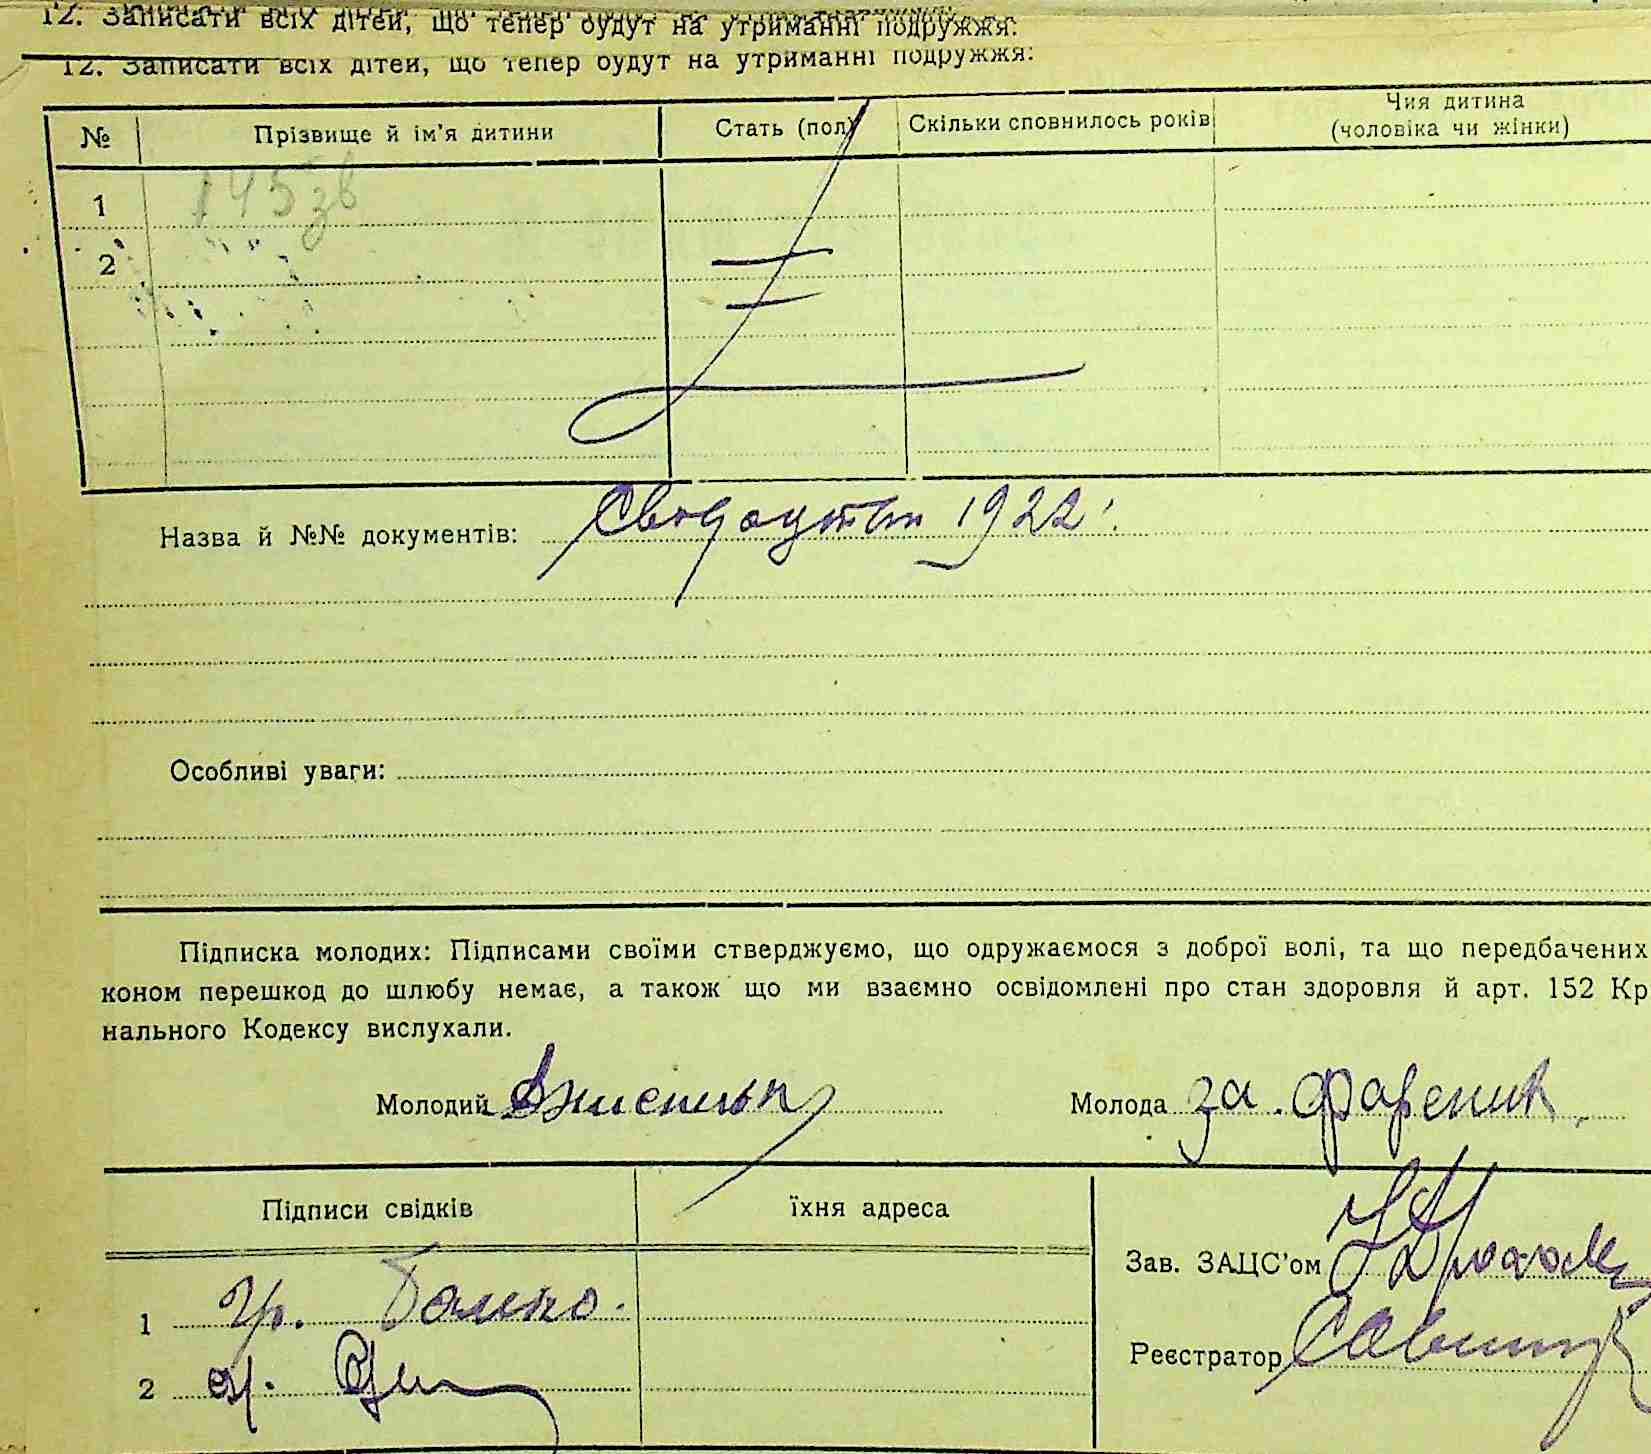 12. Записати всіх дітей, що тепер будут на утриманні подружжя:
12. Записати всіх дітей, що тепер будут на утриманні подружжя:
№ Прізвище й ім'я дитини Стать (пол) Скільки сповнилось років Чия дитина
(чоловіка чи жінки)
1 145 зв
2
Назва й №№ документів: 1922
Особливі уваги:
Підписка молодих: Підписами своїми стверджуємо, що одружаємося з доброї волі, та що передбачених
коном перешкод до шлюбу немає, а також що ми взаємно освідомлені про стан здоровля й арт. 152 Кр
нального Кодексу вислухали.
Молодий Молода за
Підписи свідків їхня адреса
Зав. ЗАЦС'ом
1 Гр.
Реєстратор
2